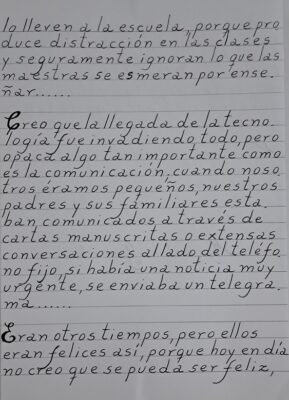 lo lleven a la escuela, porque pro
duce distracción en las clases
y seguramente ignoran lo que las
maestras se esmeran por ense.
ñar......
Creo que la llegada de la tecno.
logía fue invadiendo todo, pero
opaca algo tan importante como
es la comunicación, cuando noso.
tros éramos pequeños, nuestros
padres y sus familiares esta.
ban comunicados a través de
cartas manuscritas o extensas
conversaciones al lado del teléfo
no fijo, si había una noticia muy
urgente, se enviaba un telegra.
ma......
Eran otros tiempos, pero ellos
eran felices así, porque hoy en día
no creo que se pueda ser feliz,